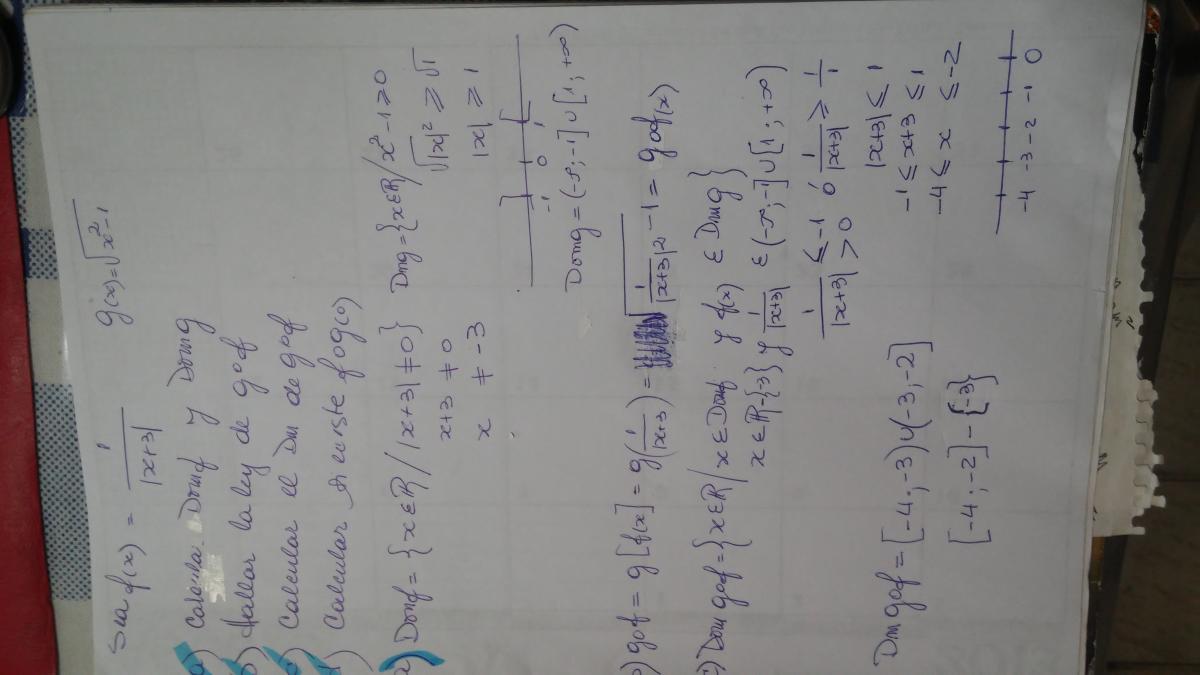 Sea f(x) = 1/|x+3|    g(x) = √(x²-1)
a) Calcula Domf y Domg
b) Hallar la ley de gof
c) Calcular el Dm de gof
d) Calcular si existe fog(0)
a) Domf = {x∈ℝ / |x+3| ≠ 0}    Dmg = {x∈ℝ / x²-1 ≥ 0
x+3 ≠ 0    √|x|² ≥ √1
x ≠ -3    |x| ≥ 1
-1 0 1
Domg = (-∞;-1] ∪ [1;+∞)
b) gof = g[f(x] = g(1/|x+3|) = √(1/|x+3|² - 1) = gof(x)
c) Dom gof = {x∈ℝ / x∈Domf y f(x) ∈ Dmg}
x∈ℝ-{-3} y 1/|x+3| ∈ (-∞;-1] ∪ [1;+∞)
1/|x+3| ≤ -1 ó 1/|x+3| ≥ 1/1
|x+3| > 0    |x+3| ≤ 1
-1 ≤ x+3 ≤ 1
Dm gof = [-4;-3) ∪ (-3;-2]    -4 ≤ x ≤ -2
[-4;-2] - {-3}
-4 -3 -2 -1 0